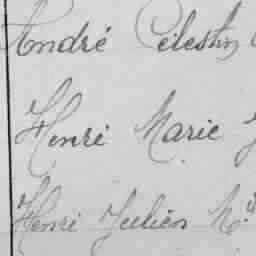 André Célestin
Henri Marie J
Henri Julien M.